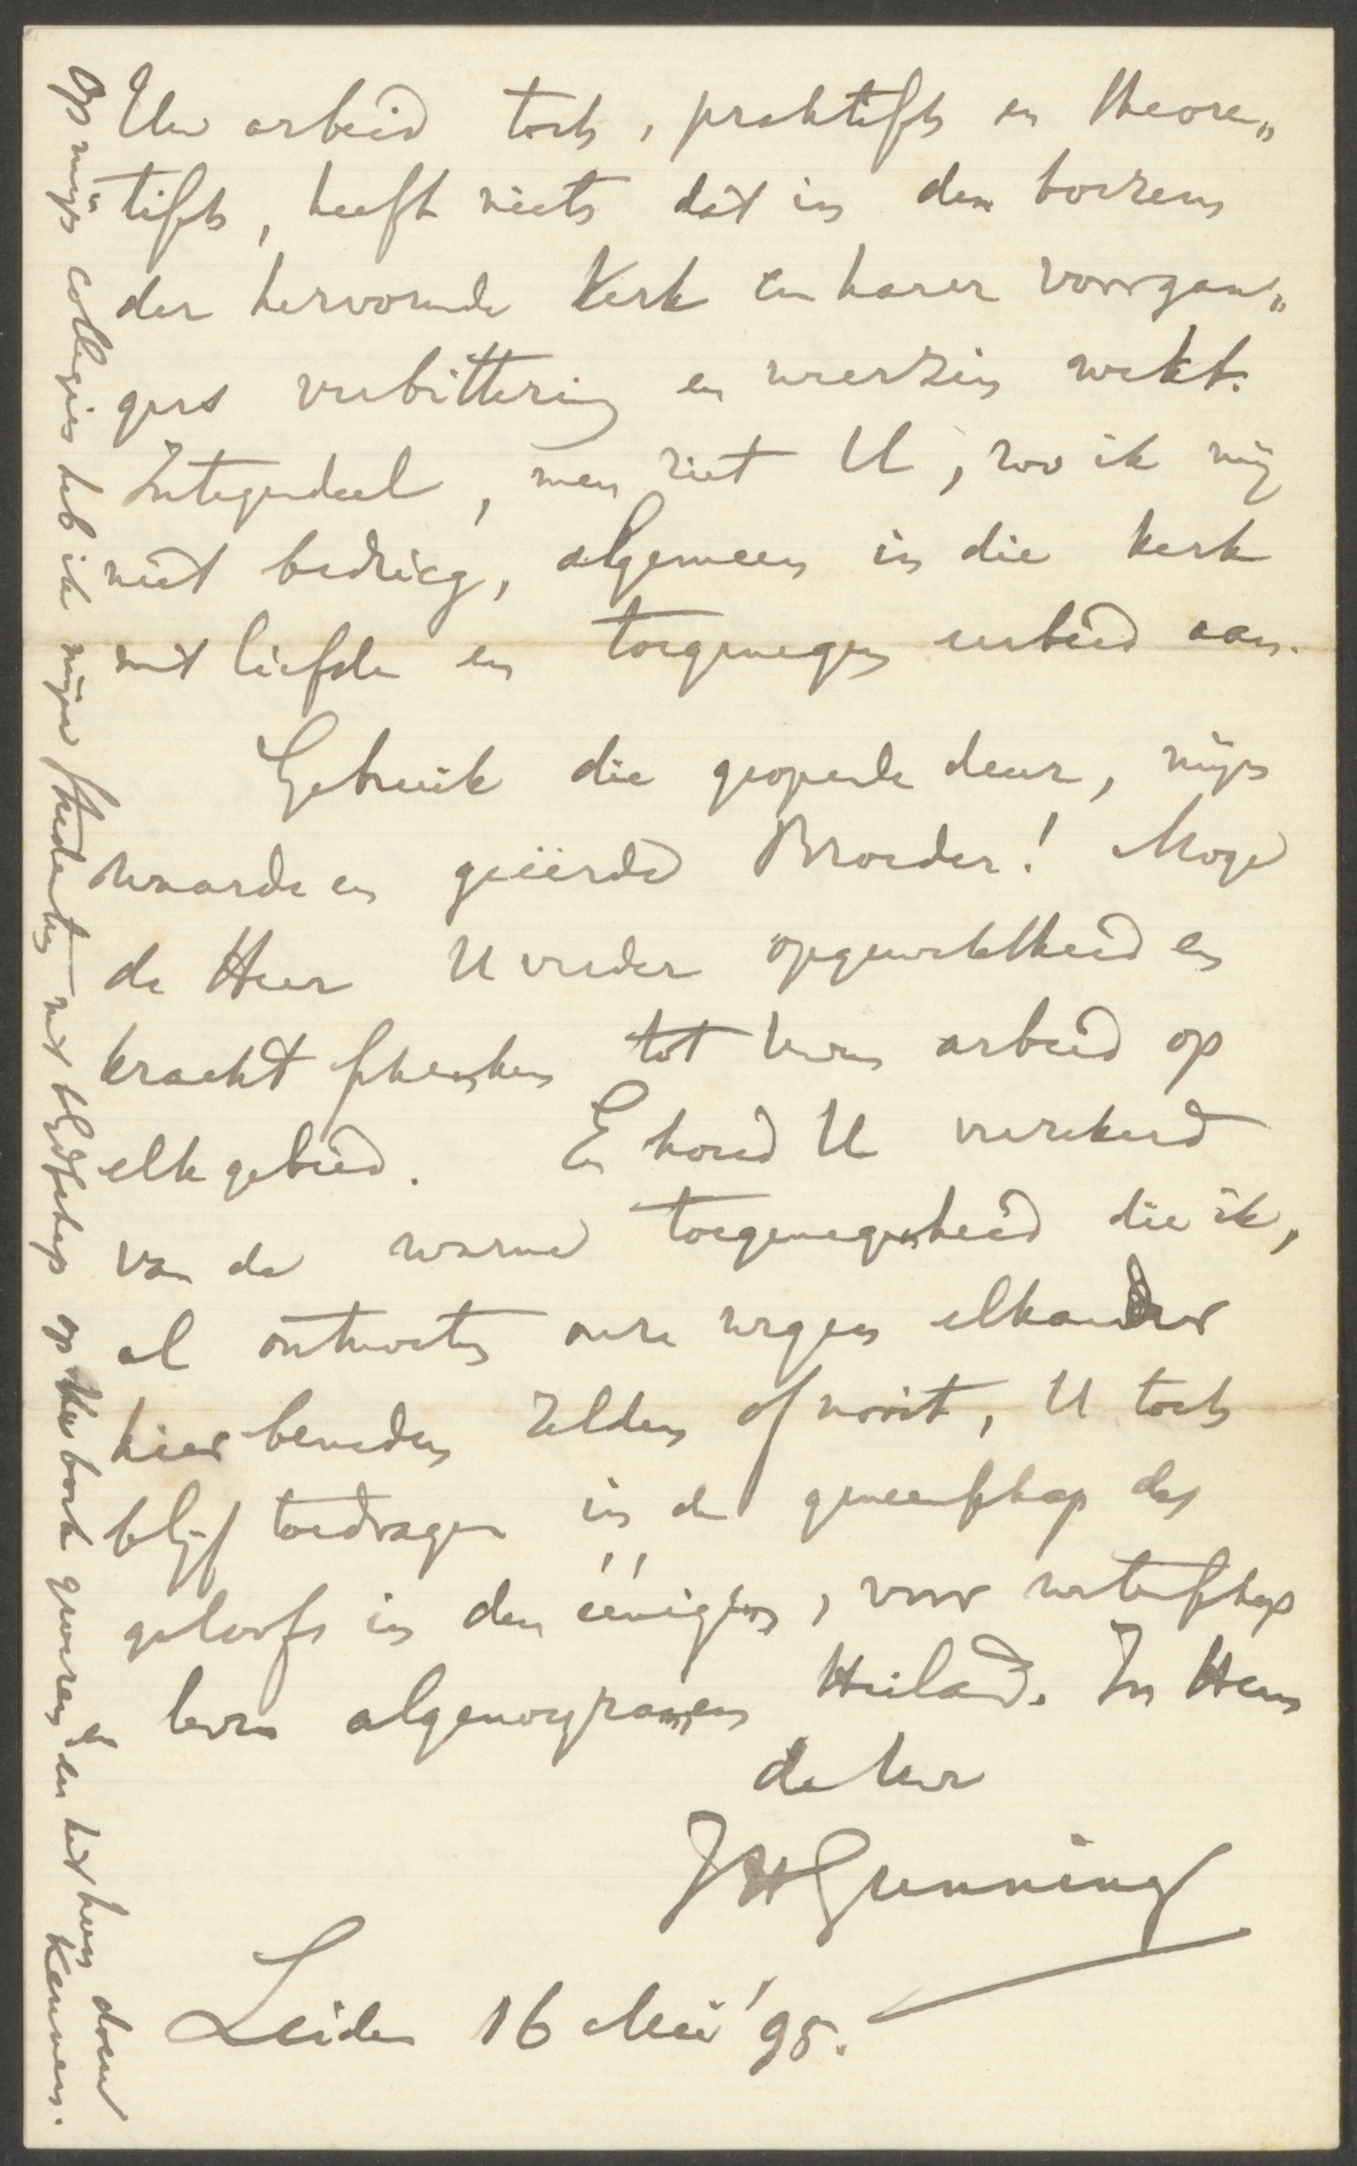 Uw arbeid toch, praktisch en theore„
tisch, heeft niets dat in den boezem
der hervormde Kerk en harer voorgan„
gers verbittering en weerzin wekt.
Integendeel, men ziet U, zoo ik mij
niet bedrieg, algemeen in die kerk
met liefde en toegenegen eerbied aan.
Gebruik die geopende deur, mijn
waarde en geëerde Broeder! Moge
de Heer U verder opgewektheid en
kracht schenken tot Uwen arbeid op
elk gebied. En houd U verzekerd
van de warme toegenegenheid die ik,
al ontmoeten onze wegen elkander
hier beneden zelden of nooit, U toch
blijf toedragen in de gemeenschap des
geloofs in den éénigen, voor wetenschap
en leven algenoegzamen Heiland. In Hem
de Uwe
JHGunning
Leiden 16 Mei '95.
Op mijn collegies heb ik mijne studenten met blijdschap op Uw boek gewezen en hen het doen
kennen.